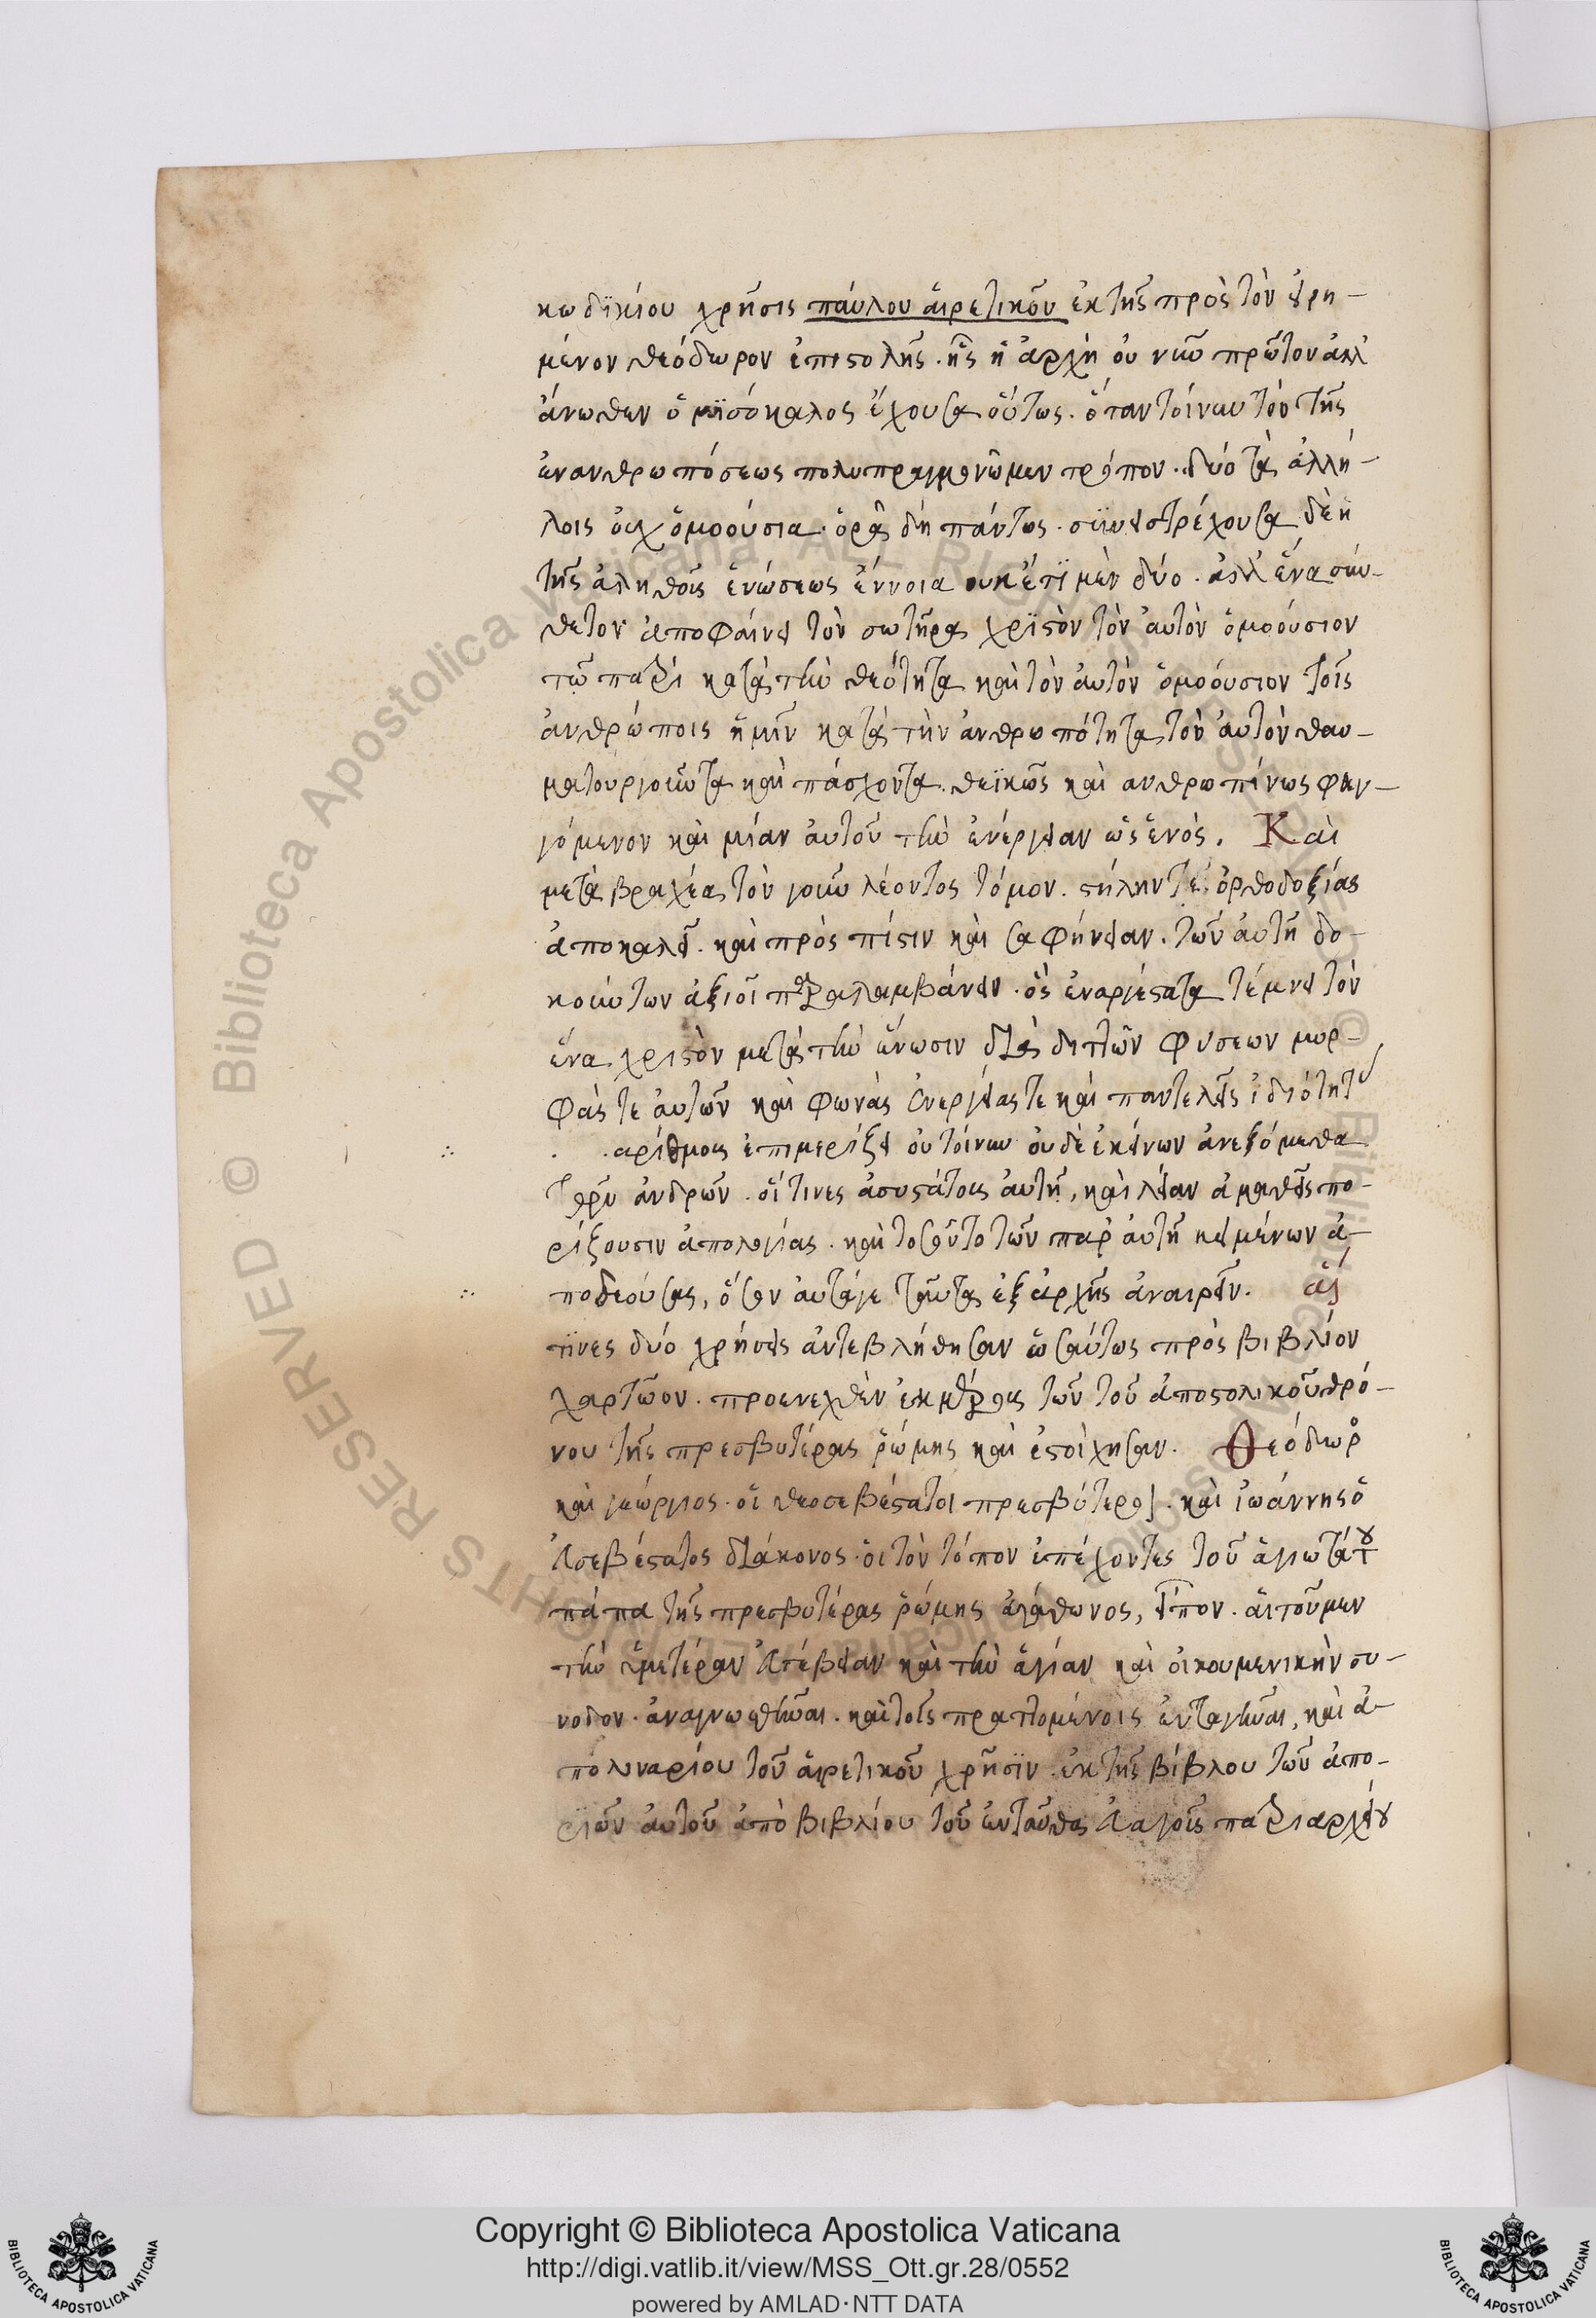 κωδϊκίου χρῆσις παύλου αἱρετικοῦ ἐκ τῆς πρὸς τὸν εἰρη-
μένον θεόδωρον ἐπιστολῆς. ἧς ἡ ἀρχὴ οὐ νῦν πρῶτον ἀλλ'
ἄνωθεν ὁ μϊσόκαλος ἔχουσα οὕτως. ὅταν τοίνυν τὸν τῆς
ἐνανθρωπόσεως πολυπραγμονῶμεν τρόπον. δύο τὰ ἀλλή-
λοις οὐχ ὁμοούσια. ὁρᾷ δὴ πάντως. σϋνειστρέχουσα δὲ ἡ
τῆς ἀληθοῦς ἑνώσεως ἔννοια οὐκέτϊ μὲν δύο. ἀλλ' ἕνα σύν-
θετον ἀποφαίνει τὸν σωτῆρα χρϊστὸν τὸν αὐτὸν ὁμοούσιον
τῷ πατρὶ κατὰ τὴν θεότητα καὶ τὸν αὐτὸν ὁμοούσιον τοῖς
ἀνθρώποις ἡμῖν κατὰ τὴν ἀνθρωπότητα τὸν αὐτὸν θαυ-
ματουργοῦντα καὶ πάσχοντα. θεϊκῶς καὶ ανθρωπίνως
γόμενον καὶ μίαν αὐτοῦ τὴν ἐνέργειαν ὡς ἑνὸς. Καὶ
μετὰ βραχέα τὸν γοῦν λέοντος τόμον. στήλην τε ὀρθοδοξίας
ἀποκαλεῖ. καὶ πρὸς πίστιν καὶ σαφήνειαν. τῶν αὐτῆ δο-
κούντων ἀξιοῖ παραλαμβάνειν. ὃς ἐναργέστατα τέμνει τὸν
ἕνα χριστὸν μετὰ τὴν ἕνωσιν διὰ διττῶν φυσεων μορ-
φάς τε αὐτῶν καὶ φωνὰς ἐνεργείας τε καὶ παντελεῖς ἰδιότητ
αρίθμοις ἐπιμερίζει οὐ τοίνυν οὐδὲ ἐκείνων ἀνεξόμεθα
τῶν ἀνδρῶν. οἵ τινες ἀσυστάτοις αὐτῆ, καὶ λείαν ἀμαθεῖς πο-
ρίζουσιν ἀπολογίας. καὶ τοσοῦτο τῶν παρ' αὐτῆ κειμένων ἀ-
ποδεούσας, ὅσον αὐτά γε ταῦτα ἐξ ἀρχῆς ἀναιρεῖν. αἵ
τϊνες δύο χρήσεις ἀντεβλήθησαν ὡσαύτως πρὸς βιβλίον
χαρτῶον. προενεχθὲν ἐκ μέρους τῶν τοῦ ἀποστολικοῦ θρό-
νου τῆς πρεσβυτέρας ῥώμης καὶ ἐστοίχησαν. Θεόδωρ
καὶ γεώργιος. οἱ θεοσεβέστατοι πρεσβύτεροι. καὶ ἰωάννης ὁ
εὐσεβέστατος διάκονος. οἱ τὸν τόπον ἐπέχοντες τοῦ ἁγιωτάτου
πάπα τῆς πρεσβυτέρας ῥώμης ἀγάθωνος, εἶπον. αἰτοῦμεν
τὴν ὑμετέραν εὐσέβειαν καὶ τὴν ἁγίαν καὶ οἰκουμενικὴν συ-
νοδον. ἀναγνωσθῆναι. καὶ τοῖς πραττομένοις ἐνταγῆναι, καὶ ἀ-
πολιναρίου τοῦ αἱρετικοῦ χρῆσϊν. ἐκ τῆς βίβλου τῶν ἀπο-
ριῶν αὐτοῦ ἀπὸ βιβλίου τοῦ ἐνταῦθα εὐαγοῦς πατριαρχείου
Copyright © Biblioteca Apostolica Vaticana
http://digi.vatlib.it/view/MSS_Ott.gr.28/0552
powered by AMLAD·NTT DATA